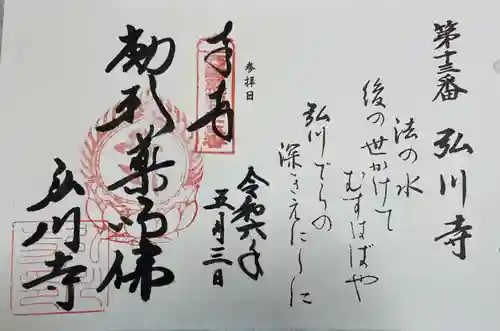 第十三番 弘川寺
法の水
後の世かけて
むすはばや
弘川でらの
深きえにしに
参拝日
令和六年
五月三日
薬師佛
弘川寺